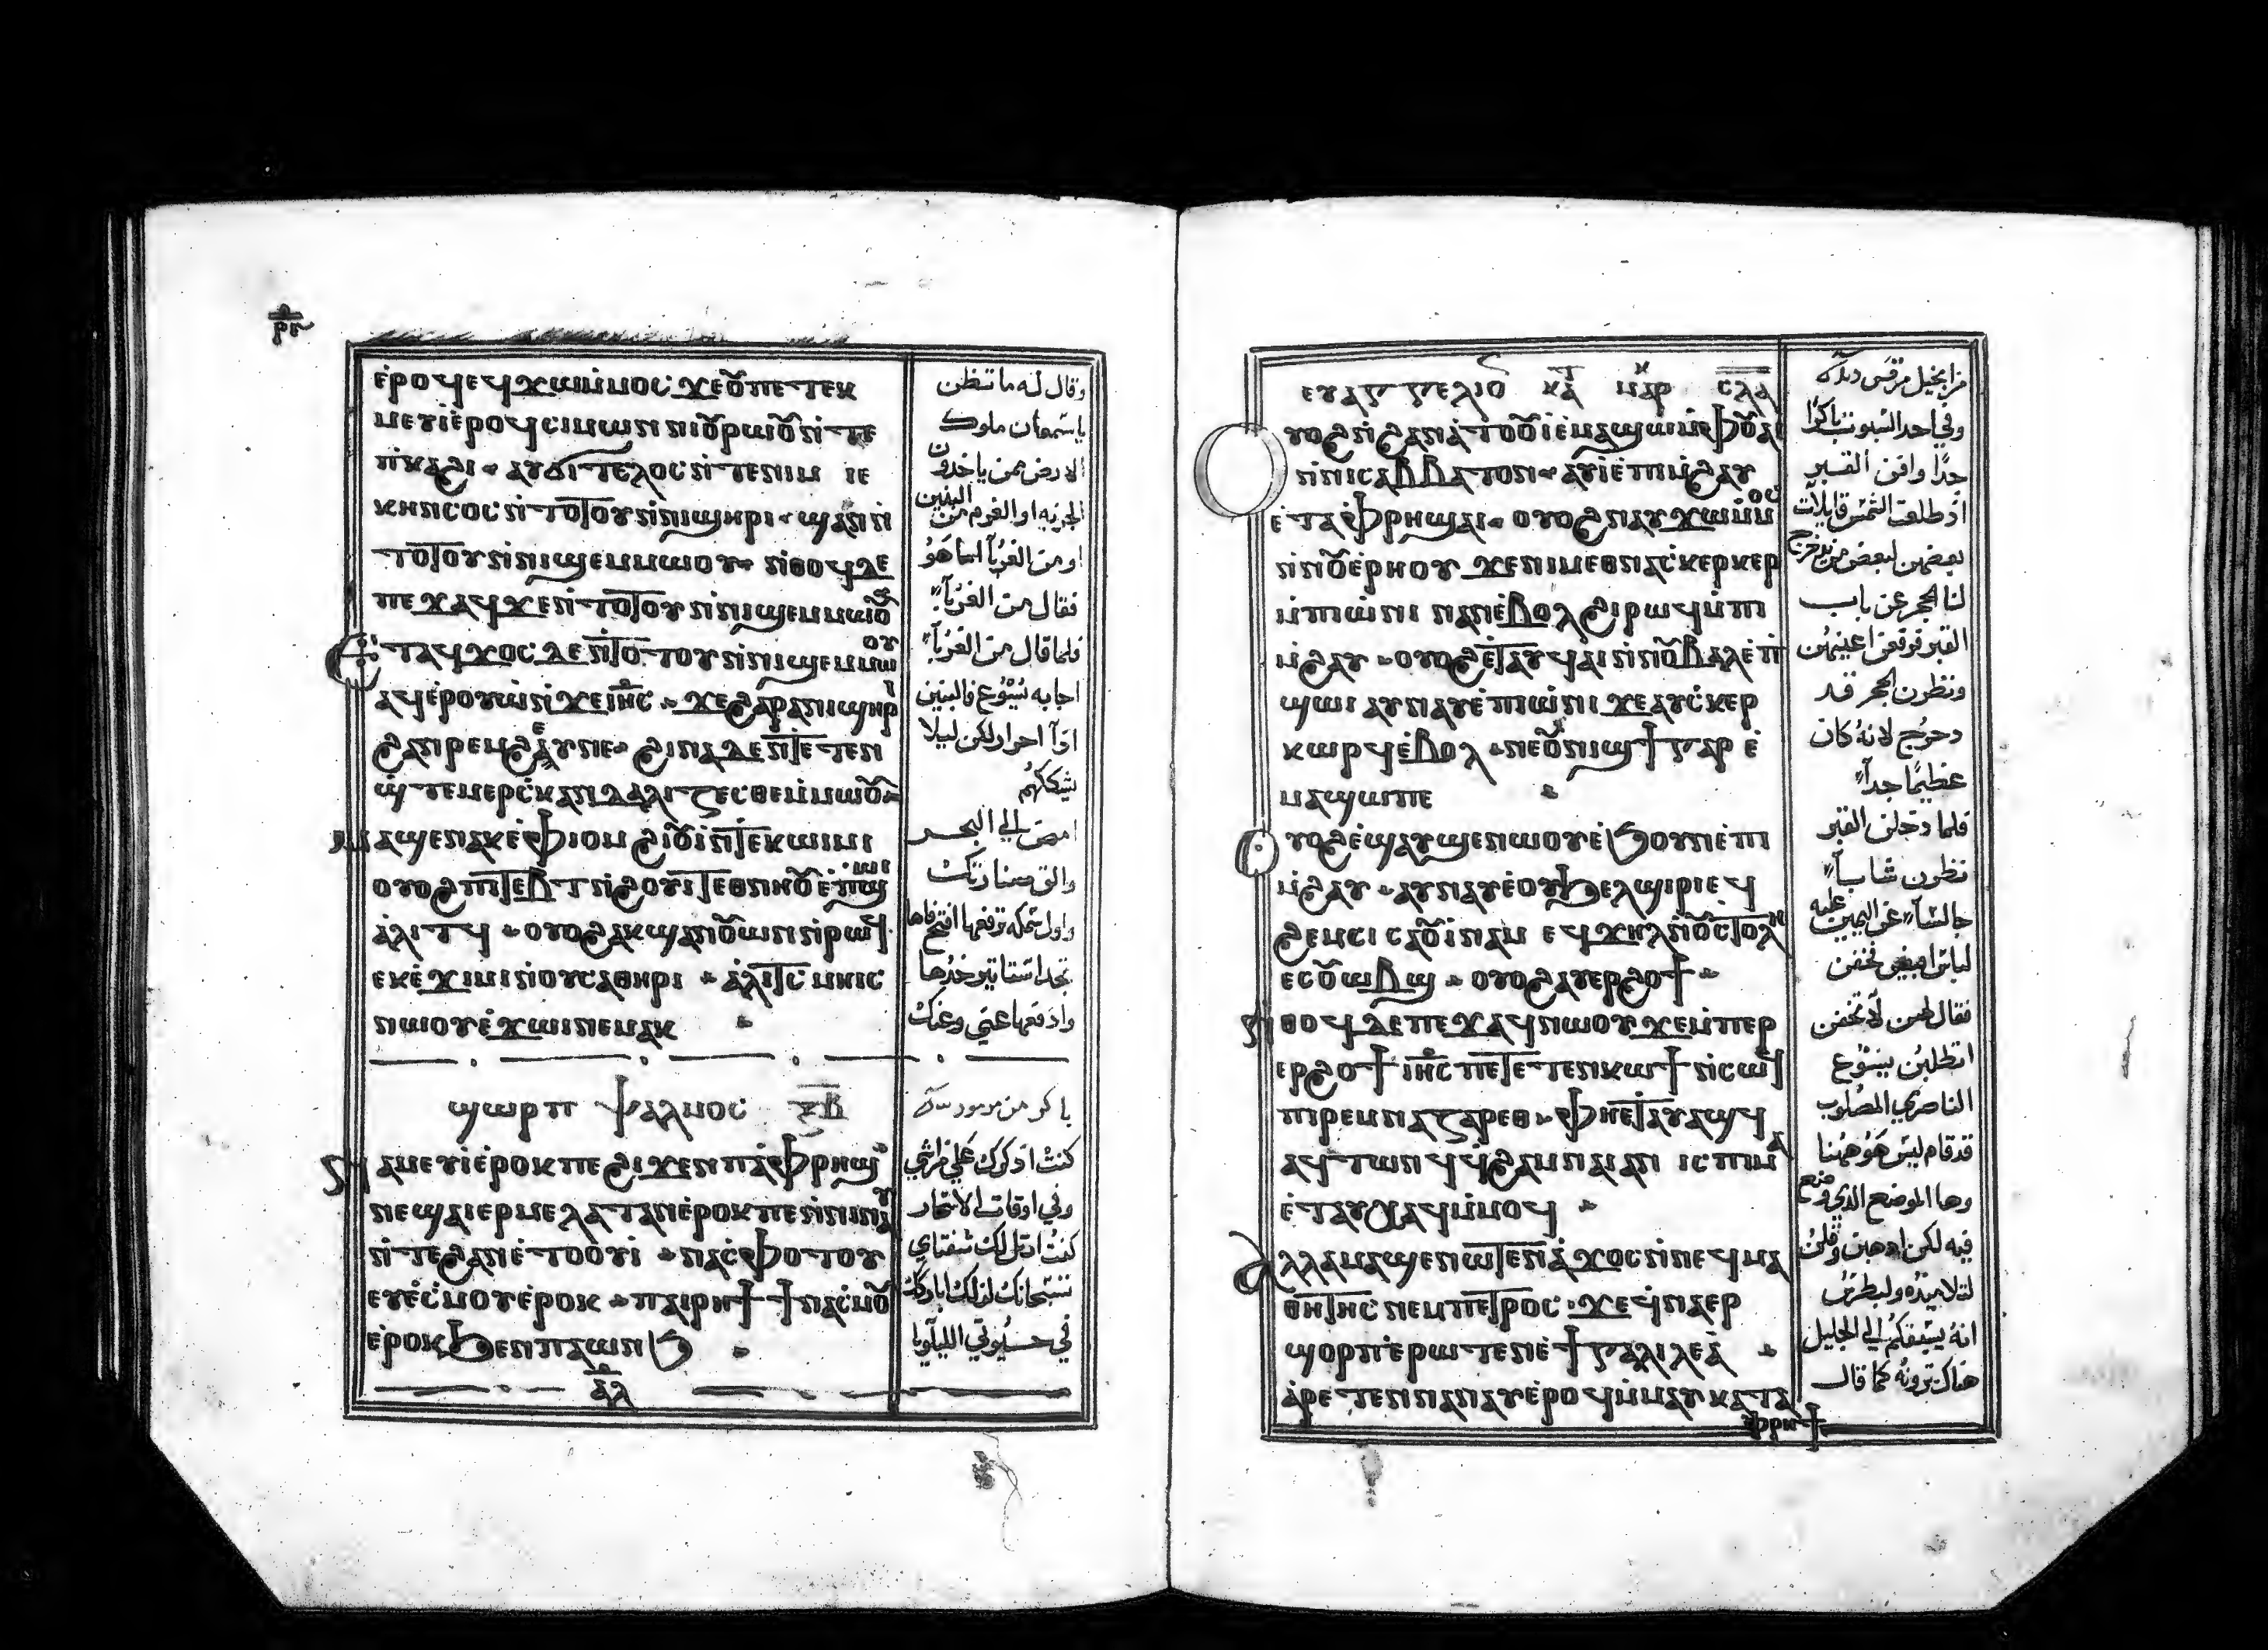 ⲉⲣⲟϥ ⲉϥϫⲱ ⲙⲙⲟⲥ ϫⲉ ⲟⲩ ⲡⲉⲧⲉⲕ
ⲙⲉⲩⲓ ⲉⲣⲟϥ ⲥⲓⲙⲱⲛ ⲛⲓⲟⲩⲣⲱⲟⲩ ⲛⲧⲉ
ⲡⲕⲁϩⲓ ⲁⲩϭⲓⲧⲉⲗⲟⲥ ⲛⲧⲉⲛⲓⲙ ⲓⲉ
ⲕⲏⲛⲥⲟⲥ ⲛⲧⲟⲧⲟⲩ ⲛⲛⲓϣⲏⲣⲓ ϣⲁⲛ ⲛ
ⲧⲟⲧⲟⲩ ⲛⲛⲓϣⲉⲙⲙⲱⲟⲩ ⲛⲑⲟϥ ⲇⲉ
ⲡⲉϫⲁϥ ϫⲉ ⲛⲧⲟⲧⲟⲩ ⲛⲛⲓϣⲉⲙⲙⲱⲟⲩ
ⲉⲧⲁϥϫⲟⲥ ⲇⲉ ⲛⲧⲟⲧⲟⲩ ⲛⲛⲓϣⲉⲙⲙⲱⲟⲩ
ⲁϥⲉⲣⲟⲩⲱ ⲛϫⲉ ⲓⲏⲥ ϫⲉ ϩⲁⲣⲁ ⲛⲓϣⲏⲣⲓ
ϩⲁⲛⲣⲉⲙϩⲉⲩ ⲛⲉ ϩⲓⲛⲁ ⲇⲉ ⲛⲧⲉⲧⲉⲛ
ϣⲧⲉⲙⲉⲣⲥⲕⲁⲛⲇⲁⲗⲓⲍⲉⲥⲑⲉ ⲙⲙⲱⲟⲩ
ⲙⲁϣⲉⲛⲁⲕ ⲉⲫⲓⲟⲙ ϩⲓⲟⲩⲓ ⲛⲧⲉⲕⲱⲓⲙⲓ
ⲟⲩⲟϩ ⲡⲓⲧⲉⲃⲧ ⲛϩⲟⲩⲓⲧ ⲉⲑⲛⲏⲟⲩ ⲉⲡϣⲱⲓ
ⲁⲗⲓⲧϥ ⲟⲩⲟϩ ⲁⲕϣⲁⲛⲟⲩⲱⲛ ⲛⲣⲱϥ
ⲉⲕⲉϫⲓⲙⲓ ⲛⲟⲩⲥⲁⲑⲏⲣⲓ ⲁⲗⲓⲧⲥ ⲙⲏⲓⲥ
ⲛⲱⲟⲩ ⲉϫⲱⲓ ⲛⲉⲙⲁⲕ
ϣⲱⲣⲡ ⲯⲁⲗⲙⲟⲥ ⲝⲃ
ⲛⲁⲓⲉⲣⲙⲉⲗⲉⲧⲁⲛ ⲉⲣⲟⲕ ⲡⲉ
ⲛⲧⲉϩⲁⲛⲁⲧⲟⲟⲩⲓ ⲛⲁⲥⲫⲟⲧⲟⲩ
ⲉⲩⲉⲥⲙⲟⲩ ⲉⲣⲟⲕ ⲡⲁⲓⲣⲏϯ ϯⲛⲁⲥⲙⲟⲩ
ⲉⲣⲟⲕ ϧⲉⲛ ⲡⲁⲱⲛϧ
ⲁⲗ
وقال له ما تظن
يا سمعان ملوك
الارض ممن ياخدون
الجزيه او الغرم من البنين
او من الغربآ اما هو
فقال من الغربآ
فلما قال من الغربآ
اجابه يسوع فالبنين
اذآ احرار ولكن ليلا
نشككهم
امض الي البحر
والق صنارتك
واول سمكه ترفعها افتح فاها
تجد استاتير خدها
وادفعها عني وعنك
باكر من مزمور
كنت اذكرك علي فراشي
وفي اوقات الاسحار
كنت ارتل لك شفتاي
تسبحانك لذلك اباركك
في حيوتي الليلويا
ⲉⲩⲁⲅⲅⲉⲗⲓⲟ ⲕⲁⲧ ⲙⲁⲣⲕ ⲥⲗⲁ
ⲟⲩⲟϩ ⲛϩⲁⲛⲁⲧⲟⲟⲩⲓ ⲉⲙⲁϣⲱ ⲙⲫⲟⲩⲁⲓ
ⲛⲛⲓⲥⲁⲃⲃⲁⲧⲟⲛ ⲁⲩⲓ ⲉⲡⲓⲙϩⲁⲩ
ⲉⲧⲁⲫⲣⲏ ϣⲁⲓ ⲟⲩⲟϩ ⲛⲁⲩϫⲱ ⲙⲙⲟⲥ
ⲛⲛⲟⲩⲉⲣⲏⲟⲩ ϫⲉ ⲛⲓⲙ ⲉⲑⲛⲁⲥⲕⲉⲣⲕⲉⲣ
ⲙⲡⲓⲱⲛⲓ ⲛⲁⲛ ⲉⲃⲟⲗ ϩⲓⲣⲱϥ ⲙⲡⲓ
ⲙϩⲁⲩ ⲟⲩⲟϩ ⲉⲧⲁⲩϥⲁⲓ ⲛⲛⲟⲩⲃⲁⲗ ⲉⲡ
ϣⲱⲓ ⲁⲩⲛⲁⲩ ⲉⲡⲓⲱⲛⲓ ϫⲉ ⲁⲩⲥⲕⲉⲣ
ⲕⲱⲣϥ ⲉⲃⲟⲗ ⲛⲉ ⲟⲩⲛⲓϣϯ ⲅⲁⲣ ⲉ
ⲙⲁϣⲱ ⲡⲉ
ⲟⲩⲟϩ ⲉⲧⲁⲩϣⲉⲛⲱⲟⲩ ⲉϧⲟⲩⲛ ⲉⲡⲓ
ⲙϩⲁⲩ ⲁⲩⲛⲁⲩ ⲉⲟⲩϧⲉⲗϣⲓⲣⲓ ⲉϥ
ϩⲉⲙⲥⲓ ⲥⲁⲟⲩⲓⲛⲁⲙ ⲉϥϫⲏⲗ ⲛⲟⲩⲥⲧⲟⲗⲏ
ⲉⲥⲟⲩⲱⲃϣ ⲟⲩⲟϩ ⲁⲩⲉⲣϩⲟϯ
ⲛⲑⲟϥ ⲇⲉ ⲡⲉϫⲁϥ ⲛⲱⲟⲩ ϫⲉ ⲙⲡⲉⲣ
ⲉⲣϩⲟϯ ⲓⲏⲥ ⲡⲉⲧⲉⲧⲉⲛⲕⲱϯ ⲛⲥⲱϥ
ⲡⲓⲣⲉⲙⲛⲁⲍⲁⲣⲉⲑ ⲫⲏⲉⲧⲁⲩⲁϣϥ
ⲁϥⲧⲱⲛϥ ϥⲭⲏ ⲙⲛⲁⲓ ⲁⲛ ⲓⲥ ⲡⲓⲙⲁ
ⲉⲧⲁⲩⲭⲁϥ ⲙⲙⲟϥ
ⲁⲗⲗⲁ ⲙⲁϣⲉⲛⲱⲧⲉⲛ ⲁϫⲟⲥ ⲛⲛⲉϥⲙⲁ
ⲑⲏⲧⲏⲥ ⲛⲉⲙ ⲡⲉⲧⲣⲟⲥ ϫⲉ ϥⲛⲁⲉⲣ
ϣⲟⲣⲡ ⲉⲣⲱⲧⲉⲛ ⲉϯⲅⲁⲗⲓⲗⲉⲁ
ⲁⲣⲉⲧⲉⲛⲛⲁⲛⲁⲩ ⲉⲣⲟϥ ⲙⲙⲁⲩ ⲕⲁⲧⲁ
ⲫⲣⲏϯ
من انجيل مرقس
وفي احد السبوت باكرا
جدا وافين القبر
اذ طلعت الشمس قايلات
بعضهن لبعض من يدحرج
لنا الحجر عن باب
القبر فرفعن اعينهن
ونظرن الحجر قد
دحرج لانه كان
عظيما جدآ
فلما دخلن القبر
نظرن شابآ
جالسآ عن اليمين عليه
لباس ابيض فخفن
فقال لهن لا تخفن
اتطلبن يسوع
الناصري المصلوب
قد قام ليس هو ههنا
وها الموضع الذي وضع
فيه لكن ادهبن وقلن
لتلاميذه ولبطرس
انه يسبقكم الي الجليل
هناك ترونه كما قال